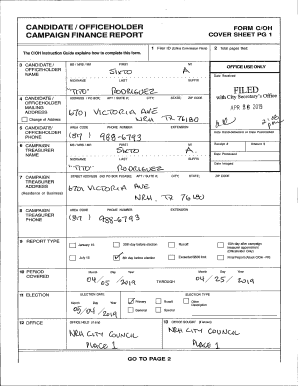 CANDIDATE / OFFICEHOLDER
CAMPAIGN FINANCE REPORT
FORM C/OH
COVER SHEET PG 1
The C/OH Instruction Guide explains how to complete this form.
1 Filer ID (Ethics Commission Filers)
2 Total pages filed:
3 CANDIDATE / OFFICEHOLDER NAME
MS / MRS / MR FIRST MI
SIXTO A
NICKNAME LAST SUFFIX
"TITO" RODRIGUEZ
OFFICE USE ONLY
Date Received
FILED
with City Secretary's Office
APR 26 2019
4 CANDIDATE / OFFICEHOLDER MAILING ADDRESS
Change of Address
ADDRESS / PO BOX; APT / SUITE #; CITY; STATE; ZIP CODE
6701 VICTORIA AVE
NRH, TX 76180
5 CANDIDATE/ OFFICEHOLDER PHONE
AREA CODE PHONE NUMBER EXTENSION
(817) 988-6793
Date Hand-delivered or Date Postmarked
Receipt # Amount $
Date Processed
Date Imaged
6 CAMPAIGN TREASURER NAME
MS / MRS / MR FIRST MI
SIXTO A
NICKNAME LAST SUFFIX
"TITO" RODRIGUEZ
7 CAMPAIGN TREASURER ADDRESS
(Residence or Business)
STREET ADDRESS (NO PO BOX PLEASE); APT / SUITE #; CITY; STATE; ZIP CODE
6701 VICTORIA AVE
NRH, TX 76180
8 CAMPAIGN TREASURER PHONE
AREA CODE PHONE NUMBER EXTENSION
(817) 988-6793
9 REPORT TYPE
January 15
30th day before election
Runoff
15th day after campaign treasurer appointment (Officeholder Only)
July 15
8th day before election
Exceeded $500 limit
Final Report (Attach C/OH - FR)
10 PERIOD COVERED
Month Day Year
04/05/2019
THROUGH
Month Day Year
04/25/2019
11 ELECTION
ELECTION DATE
Month Day Year
05/04/2019
ELECTION TYPE
Primary
Runoff
Other Description
General
Special
12 OFFICE
OFFICE HELD (if any)
NRH CITY COUNCIL
PLACE 1
13 OFFICE SOUGHT (if known)
NRH CITY COUNCIL
PLACE 1
GO TO PAGE 2